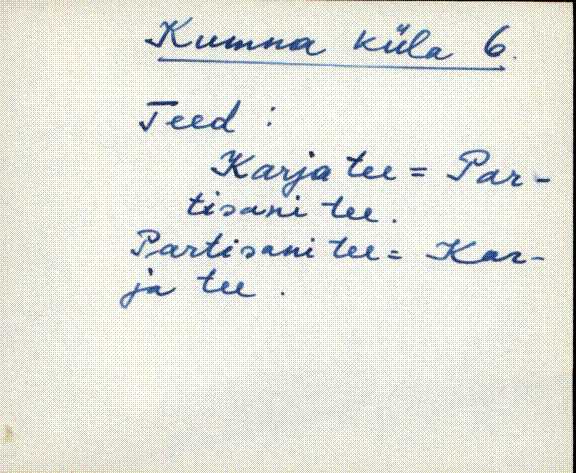 Kumna küla 6.
Teed :
Karja tee = Par-
tisani tee.
Partisani tee = Kar-
ja tee.